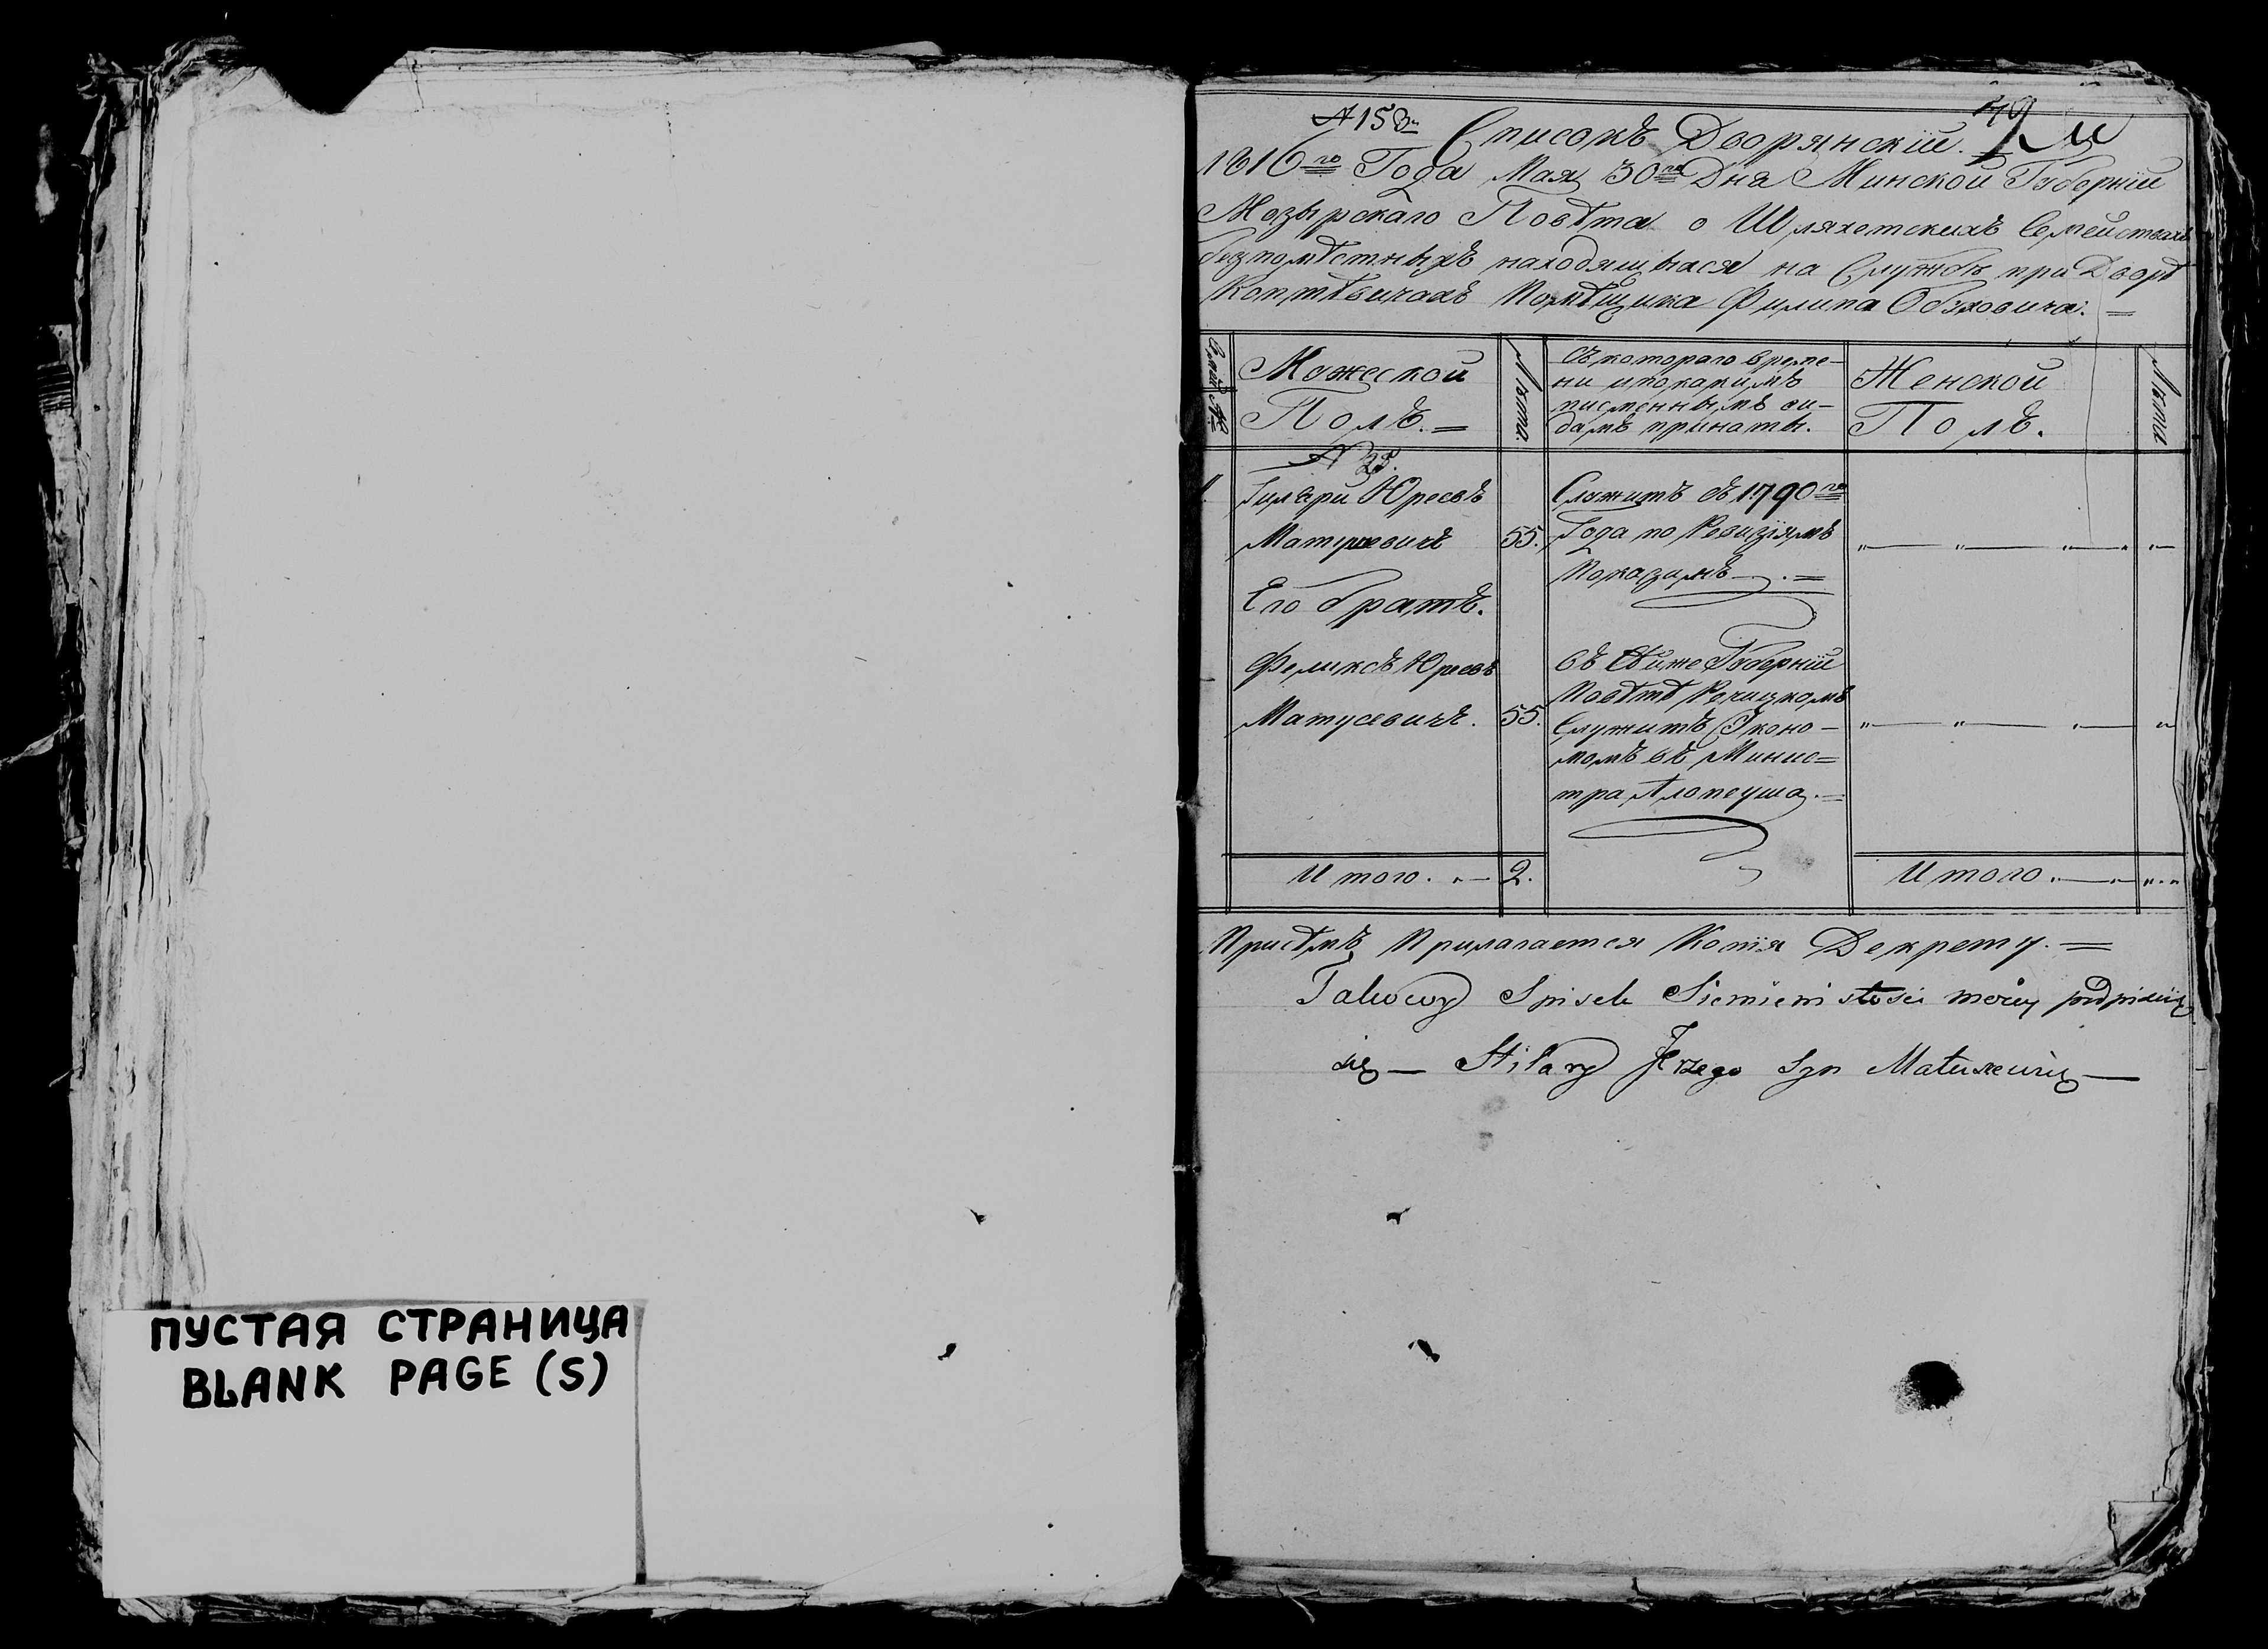 ПУСТАЯ СТРАНИЦА
BLANK PAGE (S)
Списокъ Дворянскій.
1816го Года Мая 30го Дня Минской Губерніи
Мозырскаго Повѣта о Шляхетскихъ Семействахъ
безпомѣстныхъ находящыхся на Службѣ при Дворѣ
Коптѣвичахъ Помѣщика Филипа Обуховича. =
Мужеской
Полъ. =
Лѣта.
Съ котораго време-
ни и по какимъ
писменнымъ ви-
дамъ принаты.
Женской
Полъ.
Лѣта
1
Гиляри Юрьевъ
Матусевичъ
55.
Служитъ съ 1790го
Года по Ревизіямъ
Его братъ.
Феликсъ Юрьевъ
Матусевичъ.
55.
Губерніи
Повѣтѣ Речицкомъ
Служитъ Эконо-
момъ въ Минис=
тра Алопеуша. =
Итого.
2.
Итого
Присѣмъ Прилагается Копія Декрету. =
Takowy Spisek podpisuię
się — Hilary Jerzego Syn Matusewicz —